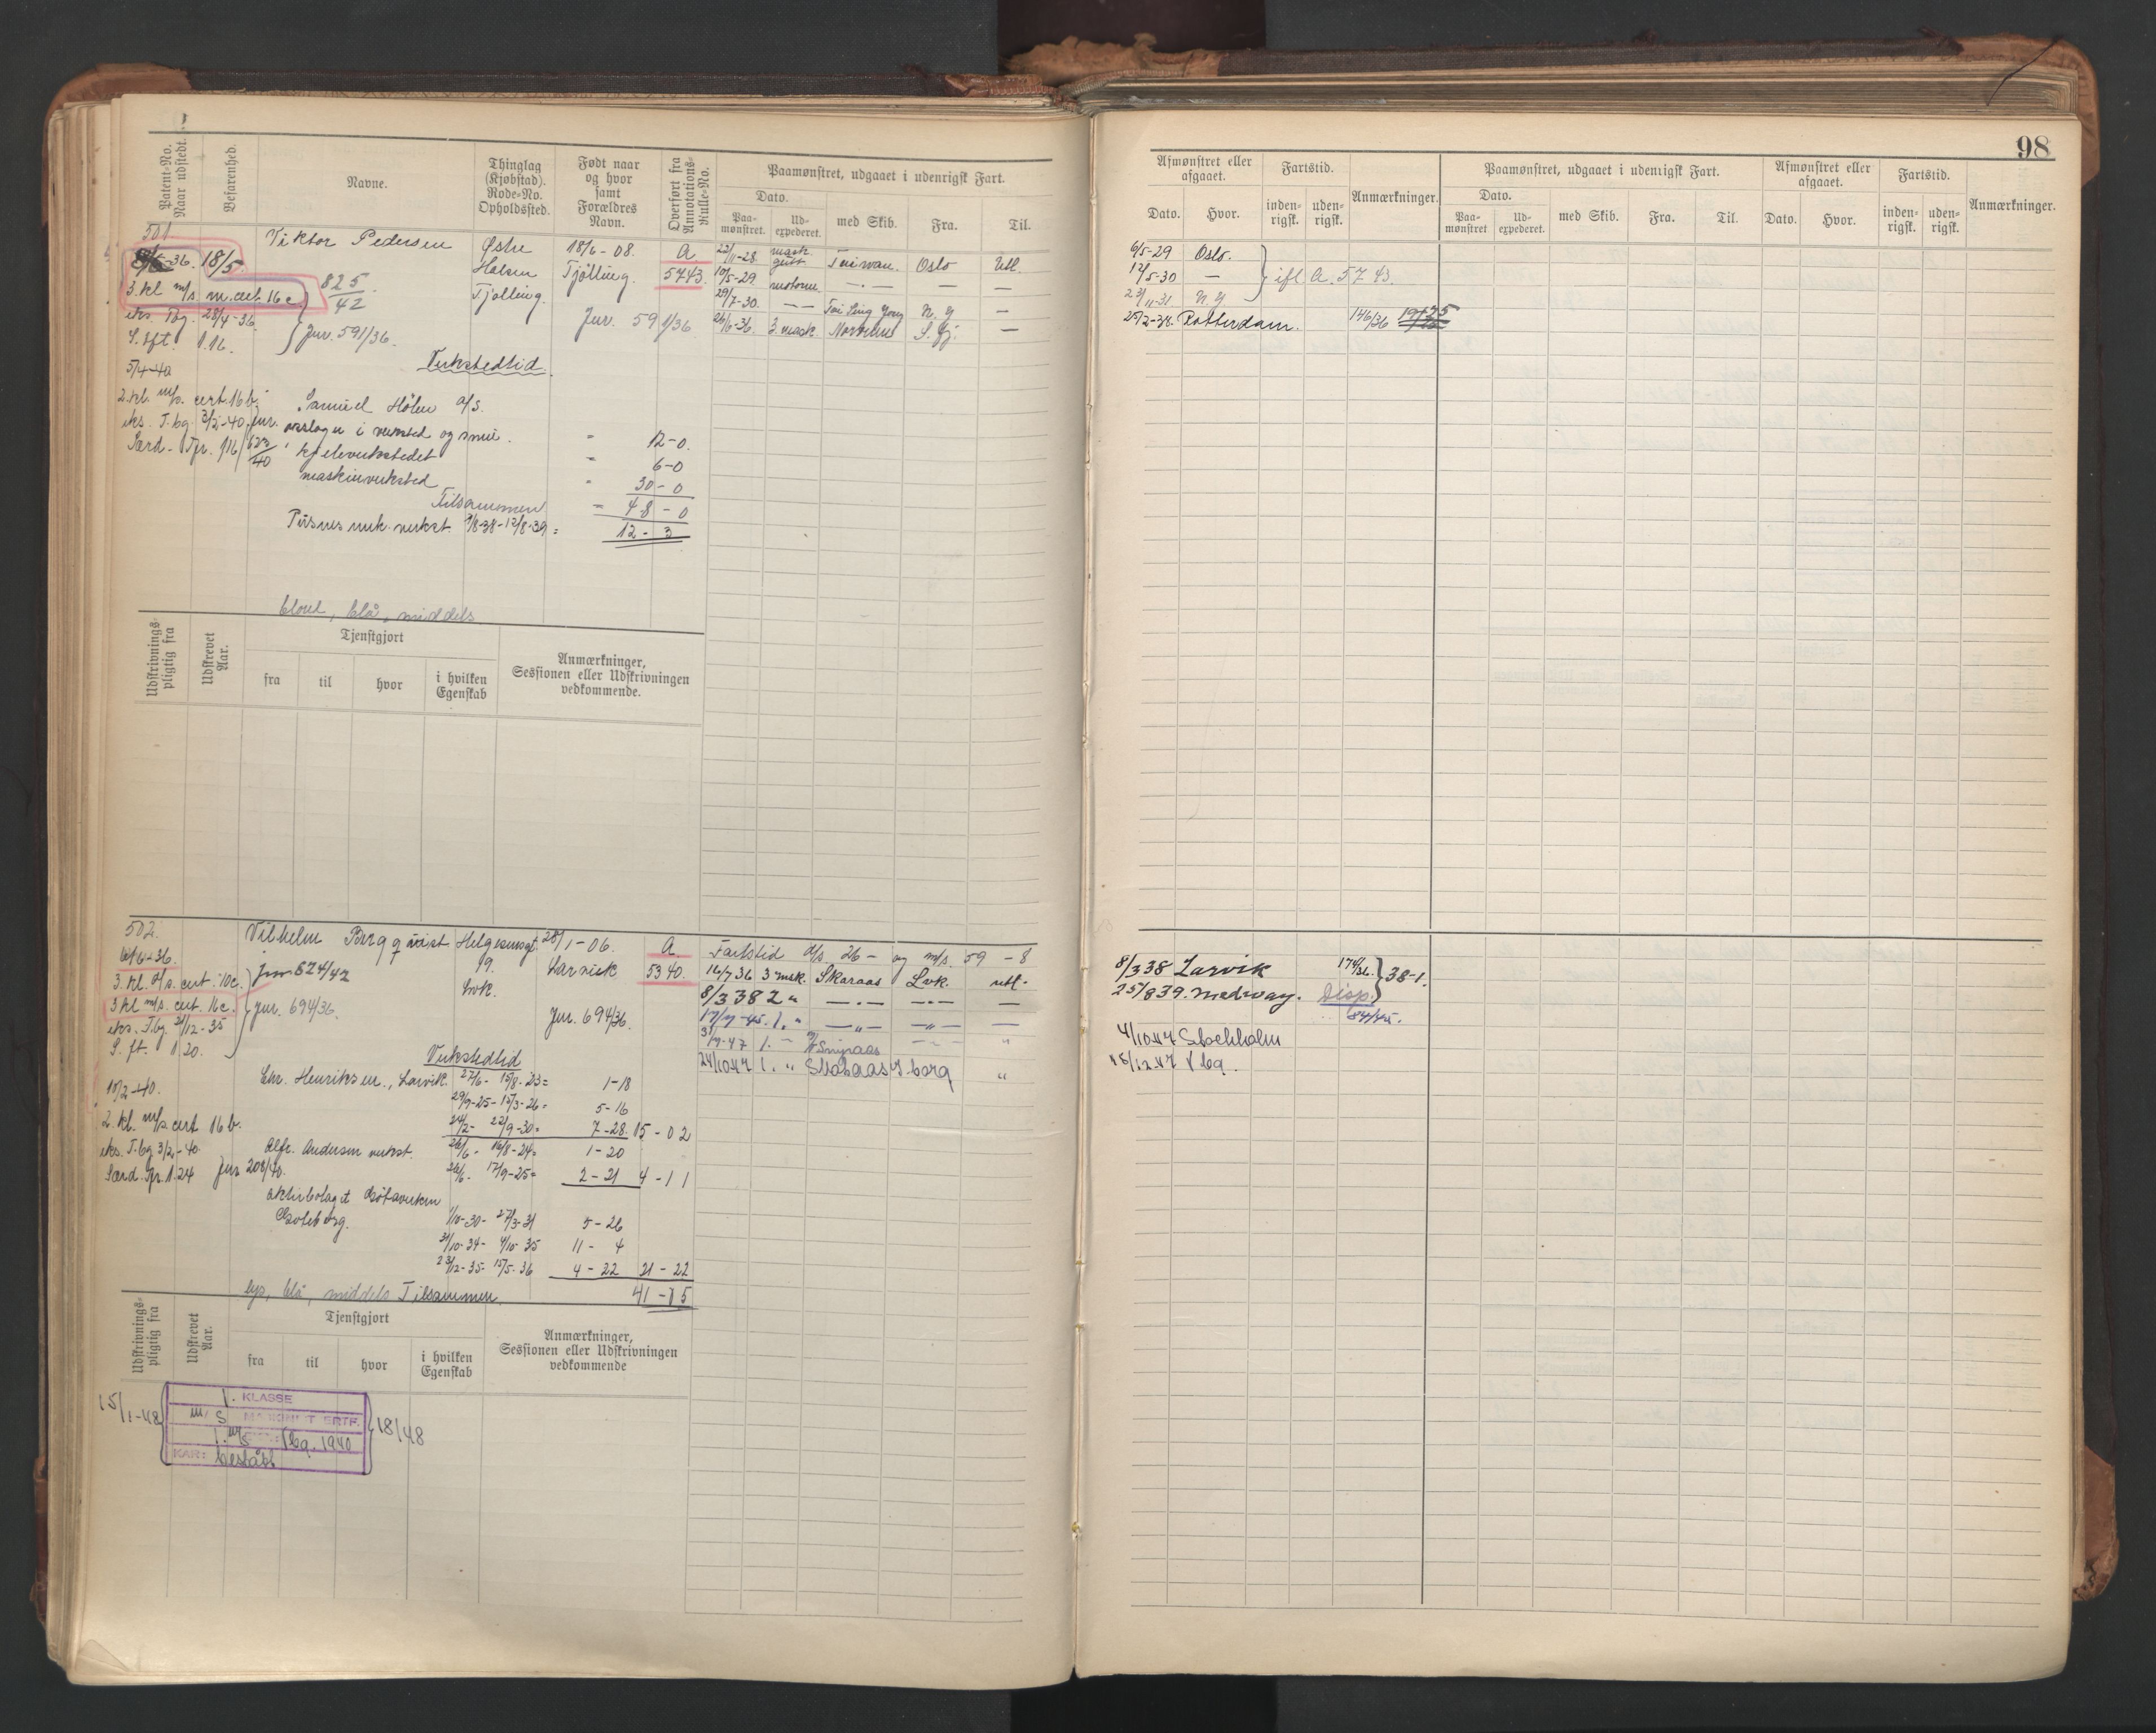 98
Patent-No. Naar udstedt.
Befarenhed.
Navne.
Thinglag (Kjøbstad). Rode-No. Opholdssted.
Født naar og hvor samt Forældres Navn.
Overført fra Annotations-Rulle-No.
Paamønstret, udgaaet i udenrigsk Fart.
Dato.
Paa-mønstret.
Ud-expederet.
med Skib.
Fra.
Til.
Afmønstret eller afgaaet.
Dato.
Hvor.
Fartstid.
inden-rigsk.
uden-rigsk.
Anmærkninger.
Paamønstret, udgaaet i udenrigsk Fart.
Dato.
Paa-mønstret
Ud-expederet.
med Skib.
Fra.
Til.
Afmønstret eller afgaaet.
Dato.
Hvor.
Fartstid.
inden-rigsk.
uden-rigsk.
Anmærkninger.
501
Viktor Pedersen
Østre
Halsen
Tjølling
18/6-08.
Tjølling.
A.
5743.
-36. 18/5
3. kl m/s. m. cert. 16 c
825/42
eks. Tbg. 28/4-36.
S. sft. 1.16.
Jur. 591/36.
Jur. 591/36
22/11-28. mask. Taiwan. Oslo Utl.
10/5-29. motorm. — . — — —
29/7-30. — — Tai Ping Yang N. Y —
26/6-36. 3 mask. S. Fj. —
6/5-29 Oslo.
12/5-30 —
23/11-31. N. Y
ifl. A. 5743.
25/2-38. Rotterdam. 146/36 19-25
Verkstedtid.
5/4-40
2. kl. m/s. cert. 16 b.
eks. T.bg. 3/2-40. Jur. 623/40
Særd. Tfr. 1.16
Samuel Hølen A/S.
i verksted og smie. " 12-0.
kjeleverkstedet " 6-0
maskinverksted " 30-0
Tilsammen = 48-0
Pusnes mek. verkst. 9/8-38-12/8-39 = 12-3
blond, blå, middels
Udskrivnings-pligtig fra
Udskrevet Aar.
Tjenstgjort
fra
til
hvor
i hvilken Egenskab
Anmærkninger, Sessionen eller Udskrivningen vedkommende.
502.
Vilhelm Bergqvist
Helgesensgt.
9.
Lvk.
28/1-06.
Larvik
A.
5340.
6/6-36.
3. kl. d/s. cert. 10 c.
3 kl m/s. cert. 16 c.
eks. T.bg 21/12-35
S. ft. 1.20.
Jur 824/42
Jur. 694/36.
Jur. 694/36.
Fartstid d/s. 26 — og m/s. 59 - 8
16/7 36 3 msk. Skaraas Lvk. utl.
8/3 38 2 " — . — — . — —
17/7-45. 1. " — " — — " — —
31/7-47 1. —
24/10 47 1. " Skaraas Tbg "
8/3 38 Larvik 174/36
25/8 39. Medway. Disp.
38-1.
84/45.
4/10 47 Stockholm
15/12 47 Tbg.
Verkstedtid
Chr. Henriksen, Larvik. 27/6- 15/8-23= 1-18
29/9-25-15/3-26= 5-16
24/2- 22/9-30= 7-28. 15-02
Alfr. Andersen verkst. 26/6- 16/8-24= 1-20
26/6- 17/9-25= 2-21 4-11
Aktiebolaget Götaverken
Göteborg.
1/10-30- 27/3-31 5-26
31/10-34- 4/10-35 11-4
23/12-35- 15/5-36 4-22 21-22
lys, blå, middels Tilsammen. 41-15
10/2-40.
2. kl. m/s cert 16 b.
eks. T.bg 3/2-40.
Særd. Tfr. 1.24 Jur 208/40.
Udskrivnings-pligtig fra
Udskrevet Aar.
Tjenstgjort
fra
til
hvor
i hvilken Egenskab
Anmærkninger, Sessionen eller Udskrivningen vedkommende
15/1-48
1. KLASSE
m/s MASKINIST SERTF.
1. m/s Tbg. 1940
KAR: bestått
18/48